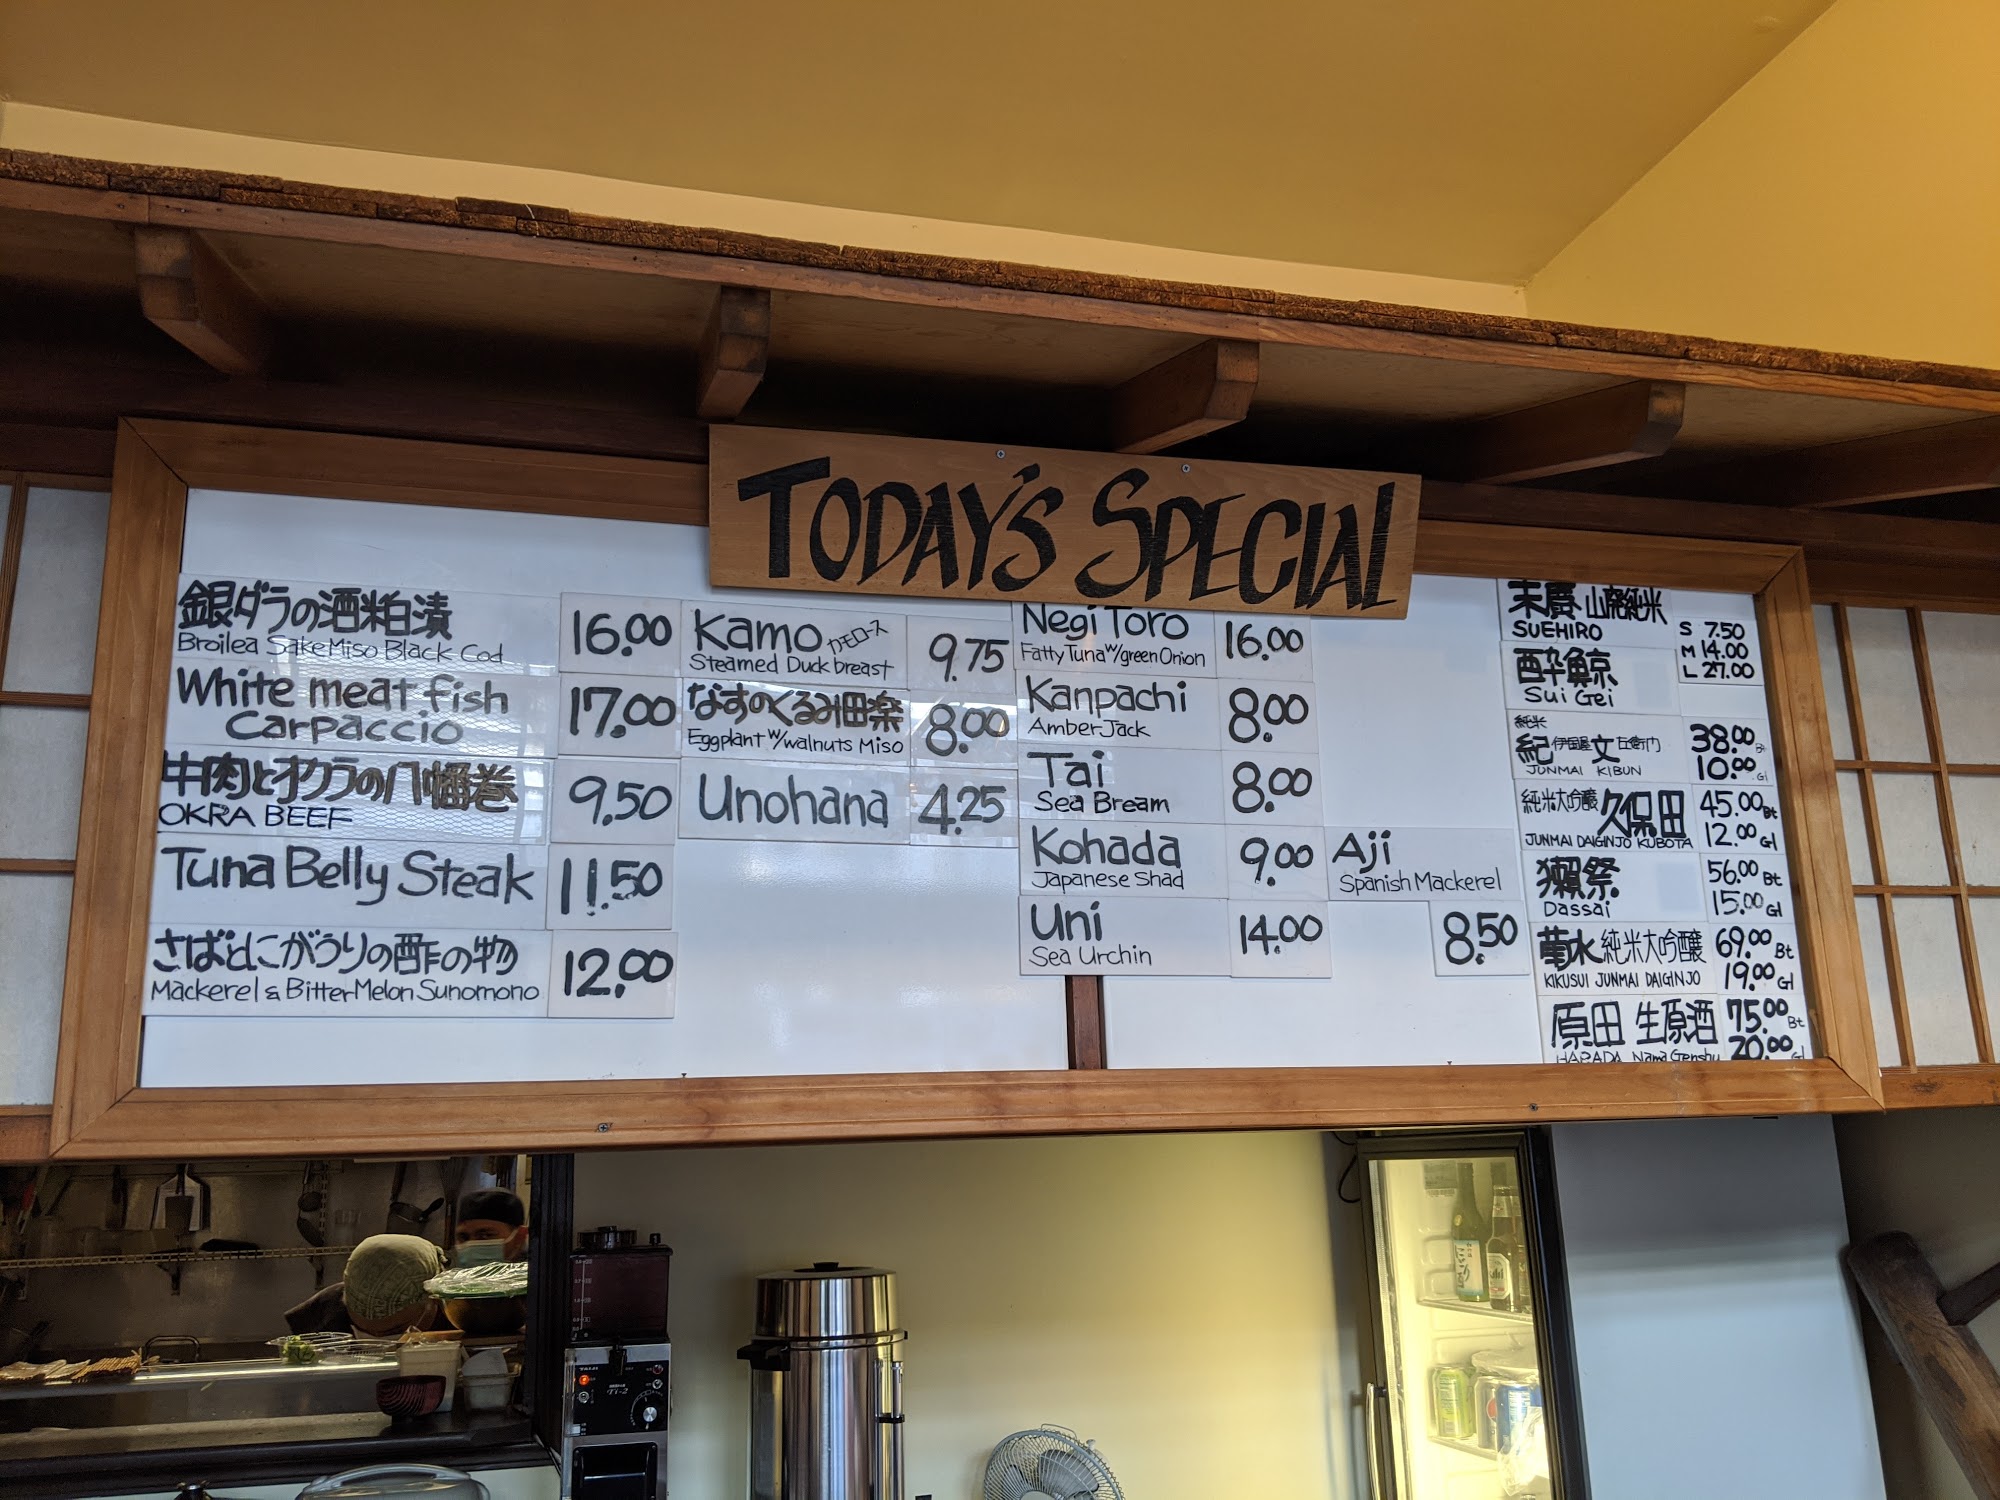 TODAY'S SPECIAL
銀ダラの酒粕漬
Broiled Sake Miso Black Cod
16.00
White meat fish
Carpaccio
17.00
牛肉とオクラの八幡巻
OKRA BEEF
9.50
Tuna Belly Steak
11.50
さばとにがうりの酢の物
Mackerel & Bitter Melon Sunomono
12.00
Kamo カモロース
Steamed Duck breast
9.75
なすのくるみ田楽
Eggplant w/walnuts Miso
8.00
Unohana
4.25
Negi Toro
Fatty Tuna w/green Onion
16.00
Kanpachi
Amber Jack
8.00
Tai
Sea Bream
8.00
Kohada
Japanese Shad
9.00
Uni
Sea Urchin
14.00
Aji
Spanish Mackerel
8.50
末廣 山廃純米
SUEHIRO
S 7.50
M 14.00
L 27.00
酔鯨
Sui Gei
純米
紀伊国屋文左衛門
JUNMAI KIBUN
38.00 Bt
10.00 Gl
純米大吟醸 久保田
JUNMAI DAIGINJO KUBOTA
45.00 Bt
12.00 Gl
獺祭
Dassai
56.00 Bt
15.00 Gl
菊水 純米大吟醸
KIKUSUI JUNMAI DAIGINJO
69.00 Bt
19.00 Gl
原田 生原酒
HARADA Nama Genshu
75.00 Bt
20.00 Gl